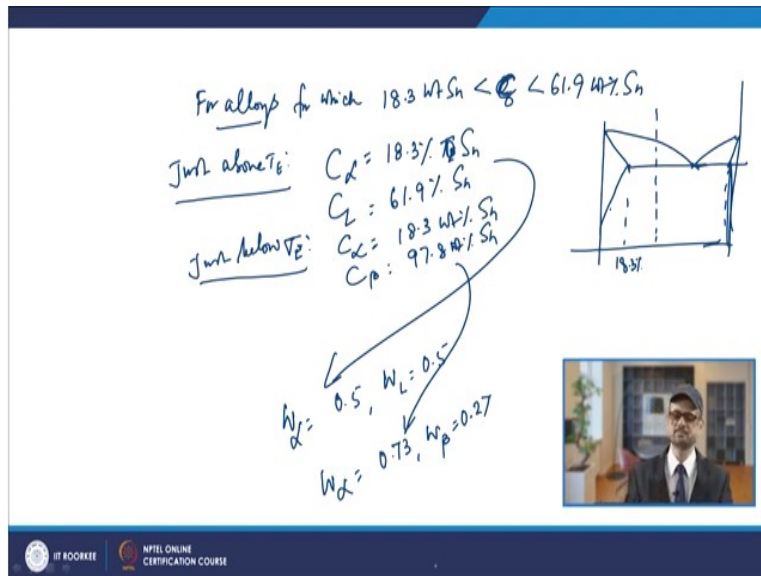 For alloys for which 18.3 wt Sn < C₀ < 61.9 wt% Sn
Just above TE: Cα = 18.3% Sn
CL = 61.9% Sn
Just below TE: Cα = 18.3 wt% Sn
Cβ = 97.8 wt% Sn
18.3%
Wα = 0.5, WL = 0.5
Wα = 0.73, Wβ = 0.27
IIT ROORKEE
NPTEL ONLINE
CERTIFICATION COURSE